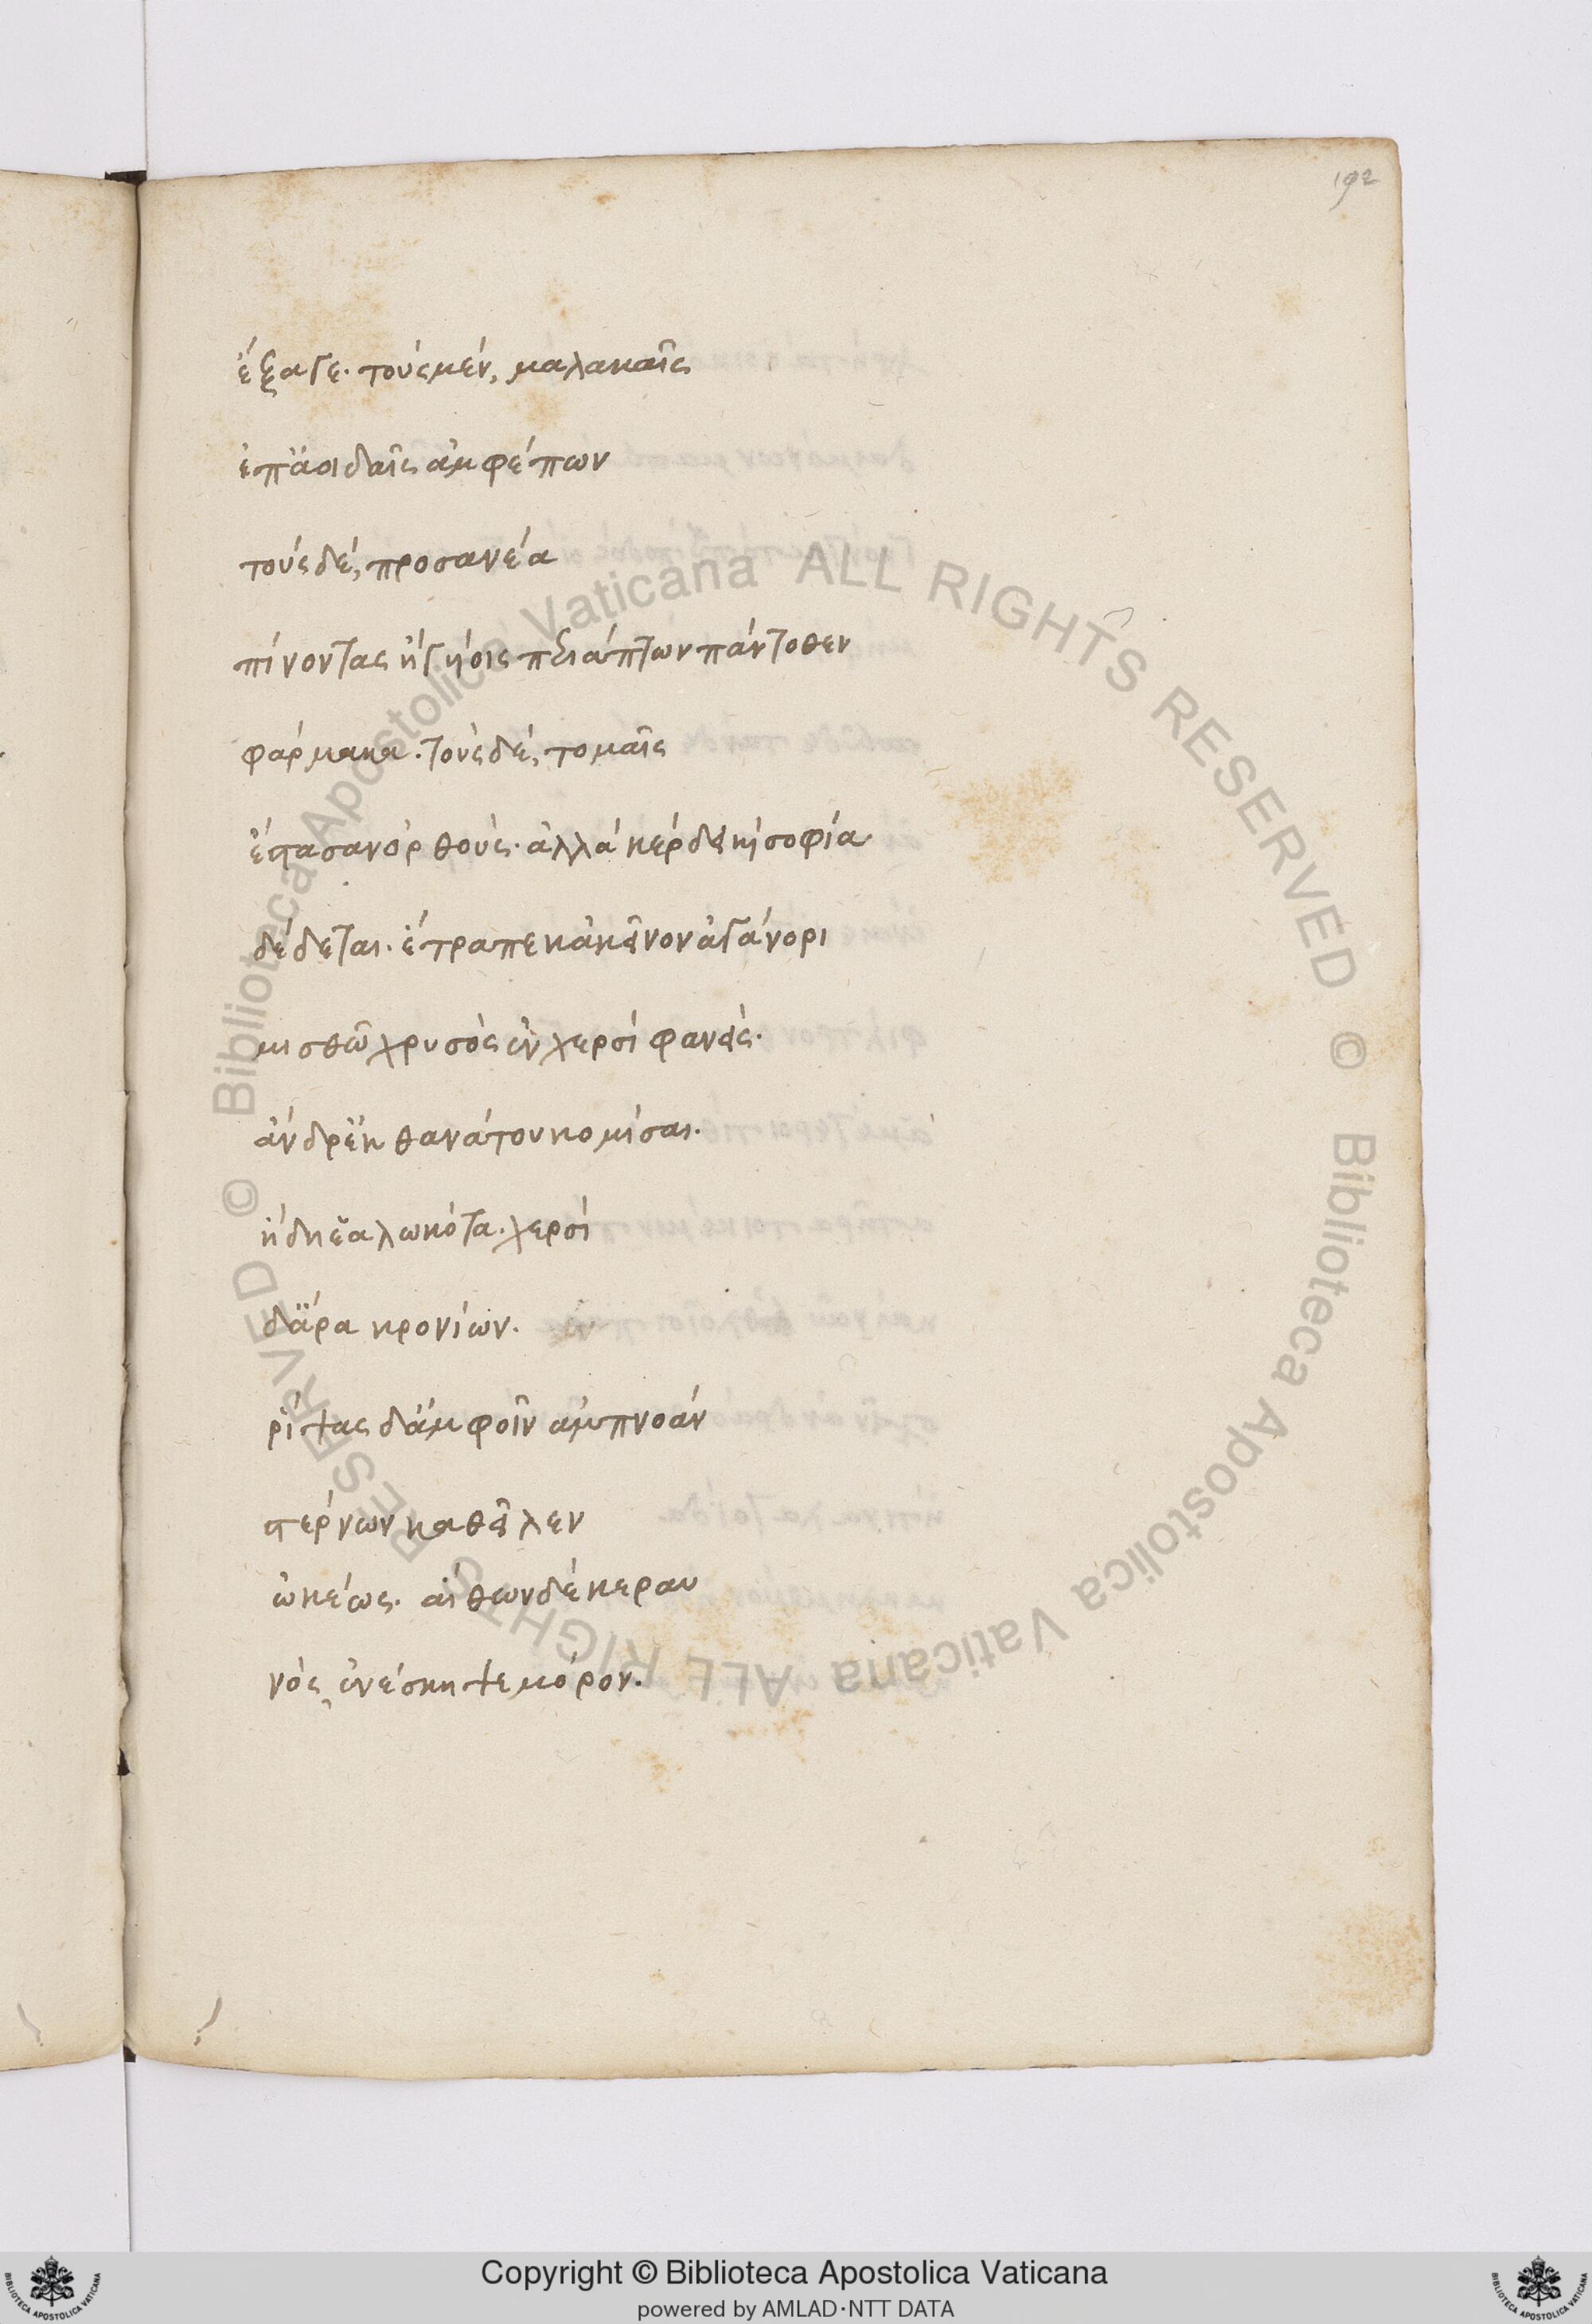 192
ἔξαγε· τοὺς μέν, μαλακαῖς
ἐπἀοιδαῖς ἀμφέπων
τοὺς δέ, προσανέα
πίνοντας ἢ γυίοις περιάπτων πάντοθεν
φάρμακα· τοὺς δέ, τομαῖς
ἔστασαν ὀρθούς· ἀλλὰ κέρδει κὴ σοφία
δέδεται· ἔτραπε κἀκεῖνον ἀγάνορι
μισθῶ χρυσὸς ἐν χερσὶ φανείς·
ἄνδρ' ἐκ θανάτου κομίσαι·
ἤδη ἑαλωκότα· χερσὶ
δ' ἄρα κρονίων·
ῥίψας δ' ἀμφοῖν ἀμπνοὰν
στέρνων καθεῖλεν
ὠκέως· αἴθων δὲ κεραυ
νὸς, ἐνέσκηψε μόρον·
© Biblioteca Apostolica Vaticana ALL RIGHTS RESERVED © Biblioteca Apostolica Vaticana ALL RIGHTS RESERVED
Copyright © Biblioteca Apostolica Vaticana
powered by AMLAD·NTT DATA